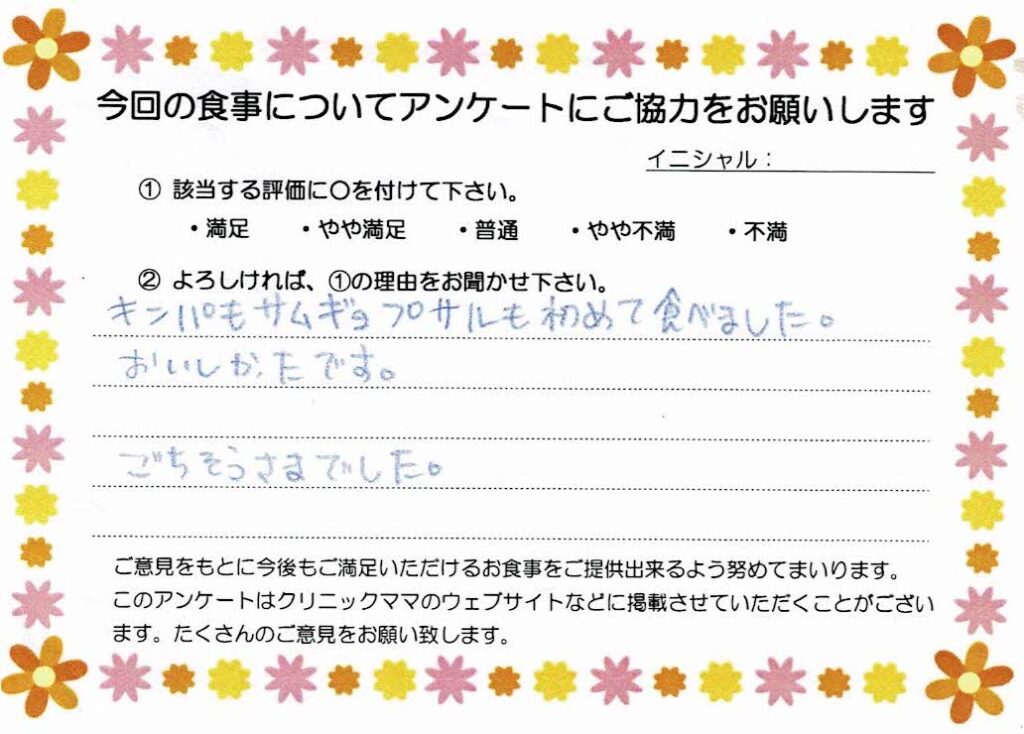 今回の食事についてアンケートにご協力をお願いします
イニシャル：
① 該当する評価に〇を付けて下さい。
・満足 ・やや満足 ・普通 ・やや不満 ・不満
② よろしければ、①の理由をお聞かせ下さい。
キンパもサムギョプサルも初めて食べました。
おいしかったです。
ごちそうさまでした。
ご意見をもとに今後もご満足いただけるお食事をご提供出来るよう努めてまいります。
このアンケートはクリニックママのウェブサイトなどに掲載させていただくことがござい
ます。たくさんのご意見をお願い致します。